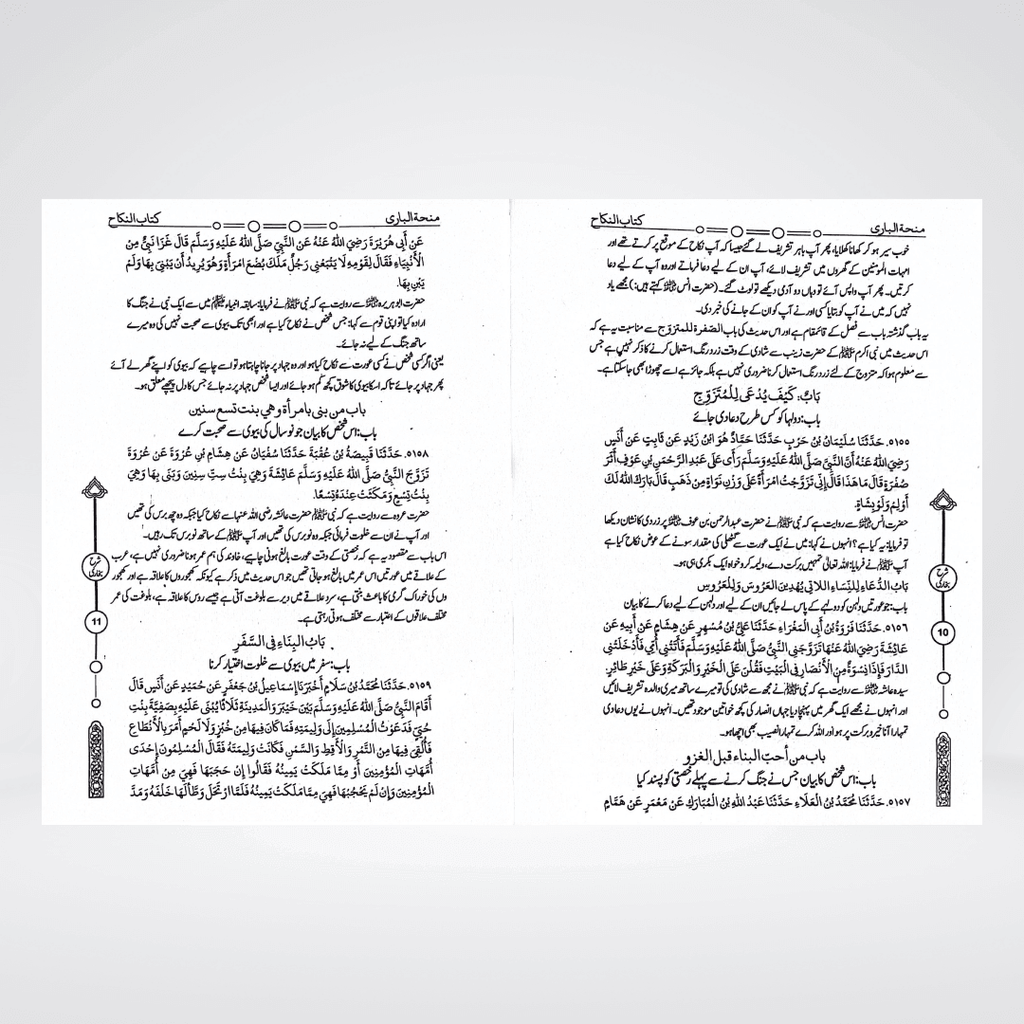 منحة الباری
کتاب النکاح
خوب سیر ہو کر کھانا کھلایا، پھر آپ باہر تشریف لے گئے جیسا کہ آپ نکاح کے موقع پر کرتے تھے اور
امہات المؤمنین کے گھروں میں تشریف لائے، آپ ان کے لیے دعا فرماتے اور وہ آپ کے لیے دعا
کرتیں۔ پھر آپ واپس آئے تو وہاں دو آدمی دیکھے تو لوٹ گئے۔ (حضرت انس رضی اللہ عنہ کہتے ہیں:) مجھے یاد
نہیں کہ میں نے آپ کو بتایا کسی اور نے آپ کو ان کے جانے کی خبر دی۔
یہ باب گذشتہ باب سے فصل کے قائمقام ہے اور اس حدیث کی باب الصفرة للمتزوج سے مناسبت یہ ہے کہ
اس حدیث میں نبی اکرم ﷺ کے حضرت زینب سے شادی کے وقت زرد رنگ استعمال کرنے کا ذکر نہیں ہے جس
سے معلوم ہوا کہ متزوج کے لئے زرد رنگ استعمال کرنا ضروری نہیں ہے بلکہ جائز ہے اسے چھوڑا بھی جا سکتا ہے۔
بَابٌ: كَيْفَ يُدْعَى لِلْمُتَزَوِّجِ
باب: دولہا کو کس طرح دعا دی جائے
٥١٥٥. حَدَّثَنَا سُلَيْمَانُ بْنُ حَرْبٍ حَدَّثَنَا حَمَّادٌ هُوَ ابْنُ زَيْدٍ عَنْ ثَابِتٍ عَنْ أَنَسٍ
رَضِيَ اللهُ عَنْهُ أَنَّ النَّبِيَّ صَلَّى اللهُ عَلَيْهِ وَسَلَّمَ رَأَى عَلَى عَبْدِ الرَّحْمَنِ بْنِ عَوْفٍ أَثَرَ
صُفْرَةٍ قَالَ مَا هَذَا قَالَ إِنِّي تَزَوَّجْتُ امْرَأَةً عَلَى وَزْنِ نَوَاةٍ مِنْ ذَهَبٍ قَالَ بَارَكَ اللهُ لَكَ
أَوْلِمْ وَلَوْ بِشَاةٍ.
حضرت انس رضی اللہ عنہ سے روایت ہے کہ نبی ﷺ نے حضرت عبدالرحمن بن عوف پر زردی کا نشان دیکھا
تو فرمایا: یہ کیا ہے؟ انہوں نے کہا: میں نے ایک عورت سے گٹھلی کی مقدار سونے کے عوض نکاح کیا ہے
آپ ﷺ نے فرمایا: اللہ تعالی تمہیں برکت دے، ولیمہ کرو خواہ ایک بکری ہی ہو۔
بَابُ الدُّعَاءِ لِلنِّسَاءِ اللاتِي يَهْدِينَ الْعَرُوسَ وَلِلْعَرُوسِ
باب: جو عورتیں دلہن کو دولہے کے پاس لے جائیں ان کے لیے اور دلہن کے لیے دعا کرنے کا بیان
٥١٥٦. حَدَّثَنَا فَرْوَةُ بْنُ أَبِي الْمَغْرَاءِ حَدَّثَنَا عَلِيُّ بْنُ مُسْهِرٍ عَنْ هِشَامٍ عَنْ أَبِيهِ عَنْ
عَائِشَةَ رَضِيَ اللهُ عَنْهَا تَزَوَّجَنِي النَّبِيُّ صَلَّى اللهُ عَلَيْهِ وَسَلَّمَ فَأَتَتْنِي أُمِّي فَأَدْخَلَتْنِي
الدَّارَ فَإِذَا نِسْوَةٌ مِنَ الْأَنْصَارِ فِي الْبَيْتِ فَقُلْنَ عَلَى الْخَيْرِ وَالْبَرَكَةِ وَعَلَى خَيْرِ طَائِرٍ.
سیدہ عائشہ رضی اللہ عنہا سے روایت ہے کہ نبی ﷺ نے مجھ سے شادی کی تو میرے ساتھ میری والدہ تشریف لائیں
اور انہوں نے مجھے ایک گھر میں پہنچا دیا جہاں انصار کی کچھ خواتین موجود تھیں۔ انہوں نے یوں دعا دی
تمہارا آنا خیر و برکت پر ہو اور اللہ کرے تمہارا نصیب بھی اچھا ہو۔
باب من أحب البناء قبل الغزو
باب: اس شخص کا بیان جس نے جنگ کرنے سے پہلے رخصتی کو پسند کیا
٥١٥٧. حَدَّثَنَا مُحَمَّدُ بْنُ الْعَلَاءِ حَدَّثَنَا عَبْدُ اللهِ بْنُ الْمُبَارَكِ عَنْ مَعْمَرٍ عَنْ هَمَّامٍ
شرح بخاری
10
منحة الباری
کتاب النکاح
عَنْ أَبِي هُرَيْرَةَ رَضِيَ اللهُ عَنْهُ عَنِ النَّبِيِّ صَلَّى اللهُ عَلَيْهِ وَسَلَّمَ قَالَ غَزَا نَبِيٌّ مِنَ
الْأَنْبِيَاءِ فَقَالَ لِقَوْمِهِ لَا يَتْبَعْنِي رَجُلٌ مَلَكَ بُضْعَ امْرَأَةٍ وَهُوَ يُرِيدُ أَنْ يَبْنِيَ بِهَا وَلَمْ
يَبْنِ بِهَا.
حضرت ابو ہریرہ رضی اللہ عنہ سے روایت ہے کہ نبی ﷺ نے فرمایا: سابقہ انبیاء میں سے ایک نبی نے جنگ کا
ارادہ کیا تو اپنی قوم سے کہا: جس شخص نے نکاح کیا ہے اور ابھی تک بیوی سے صحبت نہیں کی وہ میرے
ساتھ جنگ کے لیے نہ جائے۔
یعنی اگر کسی شخص نے کسی عورت سے نکاح کیا ہو اور وہ جہاد پر جانا چاہتا ہو تو اسے چاہیے کہ بیوی کو اپنے گھر لے آئے
پھر جہاد پر جائے تا کہ اسکا بیوی کا شوق کچھ کم ہو جائے اور ایسا شخص جہاد پر نہ جائے جس کا دل پیچھے معلق ہو۔
باب من بنى بامرأة وهي بنت تسع سنين
باب: اس شخص کا بیان جو نو سال کی بیوی سے صحبت کرے
٥١٥٨. حَدَّثَنَا قَبِيصَةُ بْنُ عُقْبَةَ حَدَّثَنَا سُفْيَانُ عَنْ هِشَامِ بْنِ عُرْوَةَ عَنْ عُرْوَةَ
تَزَوَّجَ النَّبِيُّ صَلَّى اللهُ عَلَيْهِ وَسَلَّمَ عَائِشَةَ وَهِيَ بِنْتُ سِتِّ سِنِينَ وَبَنَى بِهَا وَهِيَ
بِنْتُ تِسْعٍ وَمَكَثَتْ عِنْدَهُ تِسْعًا.
حضرت عروہ سے روایت ہے کہ نبی ﷺ نے حضرت عائشہ رضی اللہ عنہا سے نکاح کیا جبکہ وہ چھ برس کی تھیں
اور آپ نے ان سے خلوت فرمائی جبکہ وہ نو برس کی تھیں اور آپ ﷺ کے ساتھ نو برس تک رہیں۔
اس باب سے مقصود یہ ہے کہ رخصتی کے وقت عورت بالغ ہونی چاہیے، خاوند کی ہم عمر ہونا ضروری نہیں ہے، عرب
کے علاقے میں عورتیں اس عمر میں بالغ ہو جاتی تھیں جو اس حدیث میں ذکر ہے کیونکہ کھجوروں کا علاقہ ہے اور کھجور
وں کی خوراک گرمی کا باعث بنتی ہے، سرد علاقے میں دیر سے بلوغت آتی ہے جیسے روس کا علاقہ ہے، بلوغت کی عمر
مختلف علاقوں کے اعتبار سے مختلف ہوتی رہتی ہے۔
بَابُ الْبِنَاءِ فِي السَّفَرِ
باب: سفر میں بیوی سے خلوت اختیار کرنا
٥١٥٩. حَدَّثَنَا مُحَمَّدُ بْنُ سَلَامٍ أَخْبَرَنَا إِسْمَاعِيلُ بْنُ جَعْفَرٍ عَنْ حُمَيْدٍ عَنْ أَنَسٍ قَالَ
أَقَامَ النَّبِيُّ صَلَّى اللهُ عَلَيْهِ وَسَلَّمَ بَيْنَ خَيْبَرَ وَالْمَدِينَةِ ثَلَاثًا يُبْنَى عَلَيْهِ بِصَفِيَّةَ بِنْتِ
حُيَيٍّ فَدَعَوْتُ الْمُسْلِمِينَ إِلَى وَلِيمَتِهِ فَمَا كَانَ فِيهَا مِنْ خُبْزٍ وَلَا لَحْمٍ أَمَرَ بِالْأَنْطَاعِ
فَأُلْقِيَ فِيهَا مِنَ التَّمْرِ وَالْأَقِطِ وَالسَّمْنِ فَكَانَتْ وَلِيمَتَهُ فَقَالَ الْمُسْلِمُونَ إِحْدَى
أُمَّهَاتِ الْمُؤْمِنِينَ أَوْ مِمَّا مَلَكَتْ يَمِينُهُ فَقَالُوا إِنْ حَجَبَهَا فَهِيَ مِنْ أُمَّهَاتِ
الْمُؤْمِنِينَ وَإِنْ لَمْ يَحْجُبْهَا فَهِيَ مِمَّا مَلَكَتْ يَمِينُهُ فَلَمَّا ارْتَحَلَ وَطَّأَ لَهَا خَلْفَهُ وَمَدَّ
شرح بخاری
11